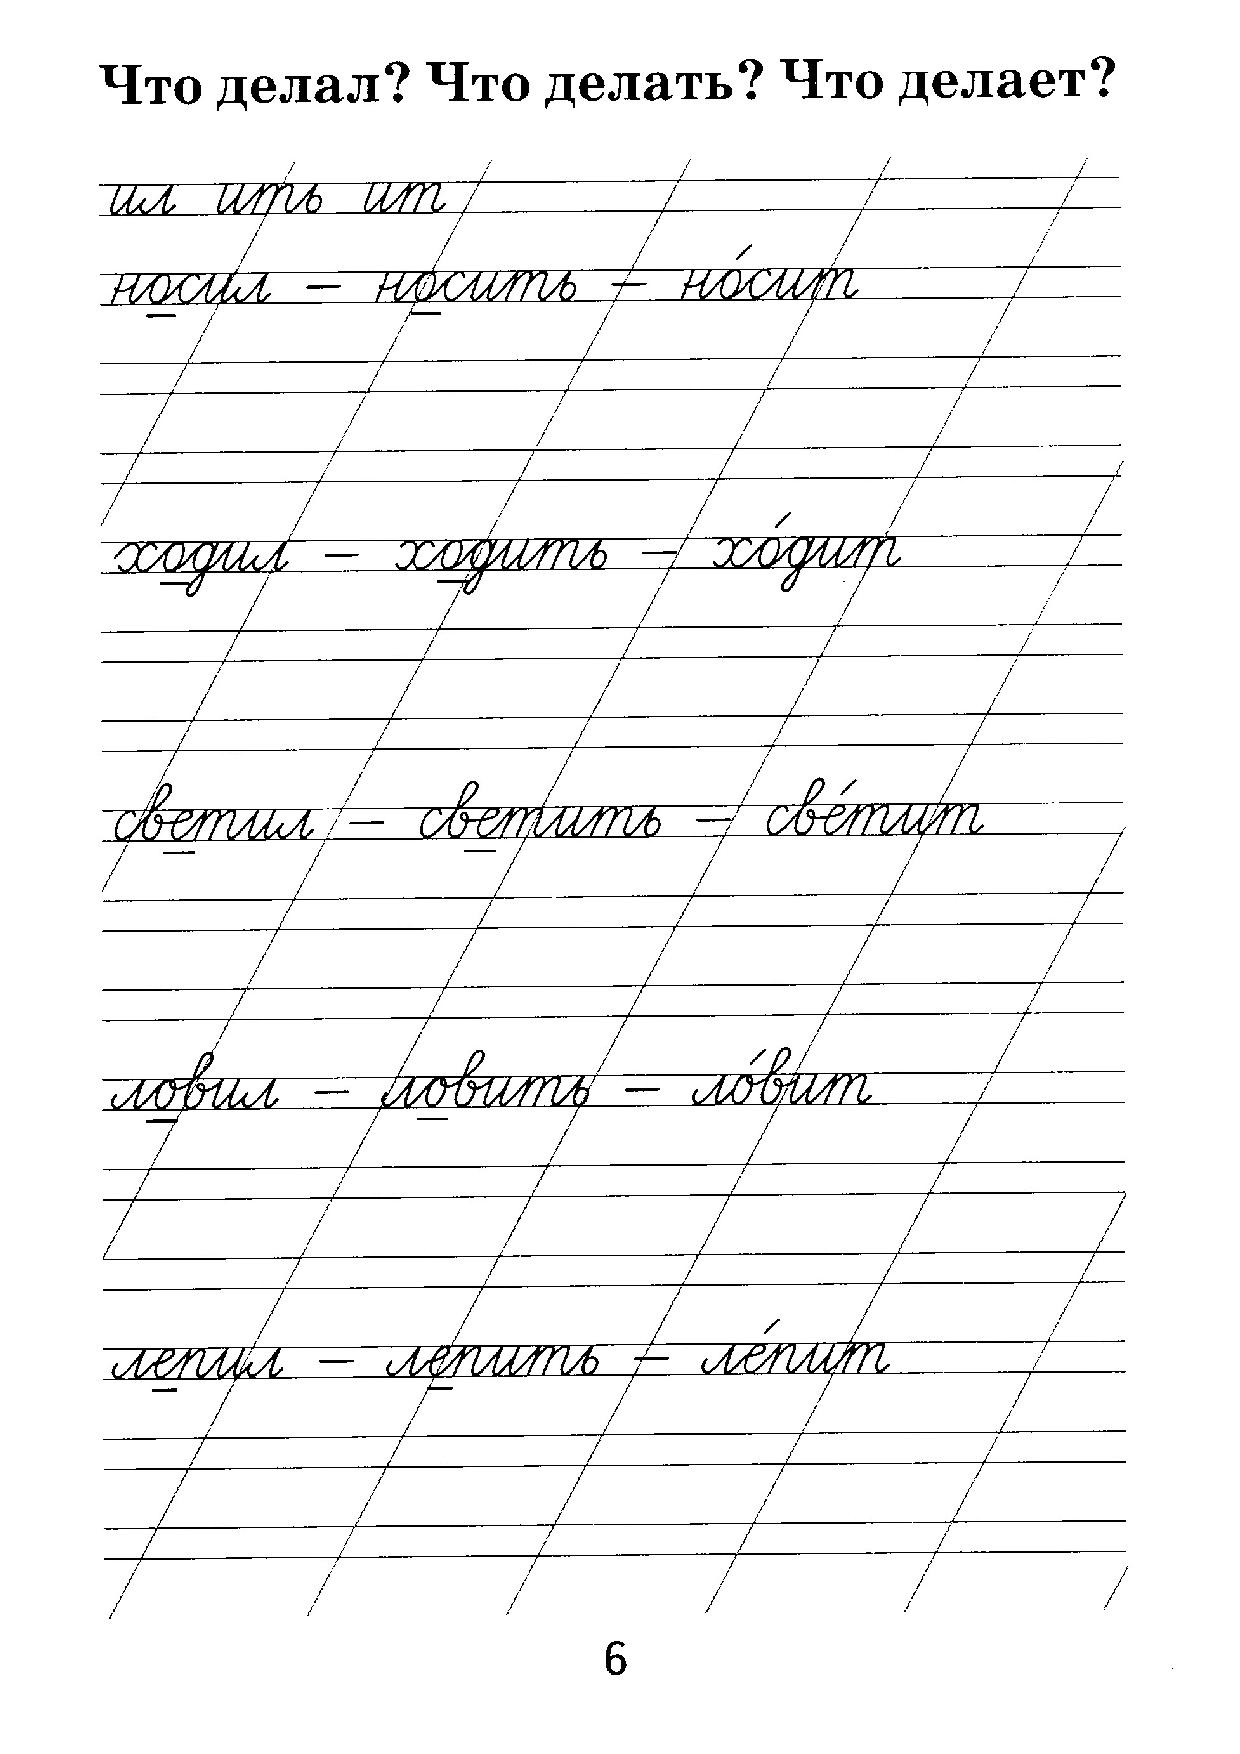 Что делал? Что делать? Что делает?
ил ить ит
носил – носить – но́сит
ходил – ходить – хо́дит
светил – светить – све́тит
ловил – ловить – ло́вит
лепил – лепить – ле́пит
6